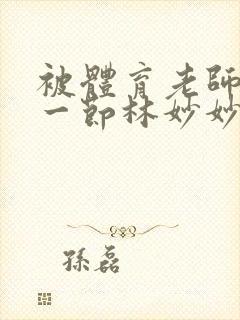 被體育老師
一節林妙妙
孫磊